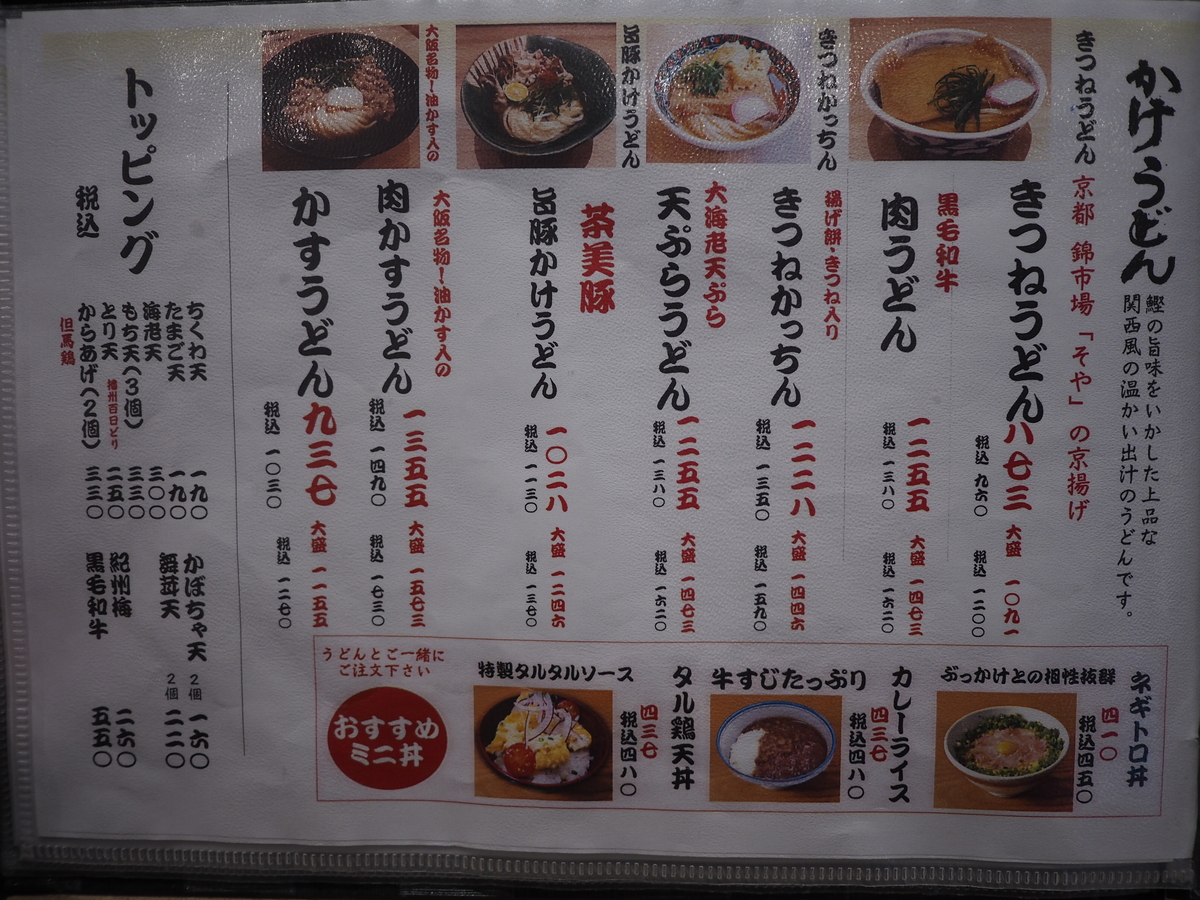 かけうどん
鰹の旨味をいかした上品な
関西風の温かい出汁のうどんです。
きつねうどん
京都 錦市場「そや」の京揚げ
きつねうどん
八七三
税込 九六〇
大盛 一〇九一
税込 一二〇〇
黒毛和牛
肉うどん
一二五五
税込 一三八〇
大盛 一四七三
税込 一六二〇
きつねかっちん
揚げ餅・きつね入り
きつねかっちん
一二二八
税込 一三五〇
大盛 一四四六
税込 一五九〇
大海老天ぷら
天ぷらうどん
一二五五
税込 一三八〇
大盛 一四七三
税込 一六二〇
旨豚かけうどん
茶美豚
旨豚かけうどん
一〇二八
税込 一一三〇
大盛 一二四六
税込 一三七〇
大阪名物!油かす入の
大阪名物!油かす入の
肉かすうどん
一三五五
税込 一四九〇
大盛 一五七三
税込 一七三〇
かすうどん
九三七
税込 一〇三〇
大盛 一一五五
税込 一二七〇
トッピング
税込
ちくわ天 一九〇
たまご天 一九〇
海老天 三〇〇
もち天(3個) 三三〇
とり天 播州百日どり 二五〇
からあげ(2個) 三三〇
但馬鶏
かぼちゃ天 2個 一六〇
舞茸天 2個 二二〇
紀州梅 二六〇
黒毛和牛 五五〇
ネギトロ丼
ぶっかけとの相性抜群
四一〇
税込四五〇
カレーライス
牛すじたっぷり
四三七
税込四八〇
タル鶏天丼
特製タルタルソース
四三七
税込四八〇
うどんとご一緒に
ご注文下さい
おすすめ
ミニ丼